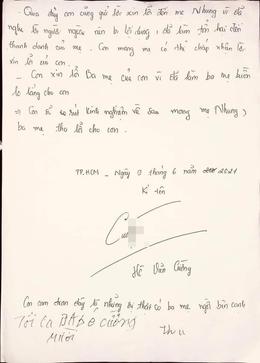 - Qua đây con cũng gửi lời xin lỗi đến mẹ Nhung vì đã
nghe lời người ngoài nên bị lợi dụng, đã làm tổn hại đến
thanh danh của mẹ. Con mong mẹ có thể chấp nhận lời
xin lỗi của con.
- Con xin lỗi Ba mẹ của con vì đã làm ba mẹ buồn
lo lắng cho con
=> Con sẽ rút kinh nghiệm về sau mong mẹ Nhung,
ba mẹ tha lỗi cho con.
TP.HCM - Ngày 9 tháng 6 năm 2021
Kí tên
Hồ Văn Cường
Con cam đoan đây là những lời thật có ba mẹ ngồi bên cạnh
Tôi là BA Bé CƯỜNG
MƯỜI